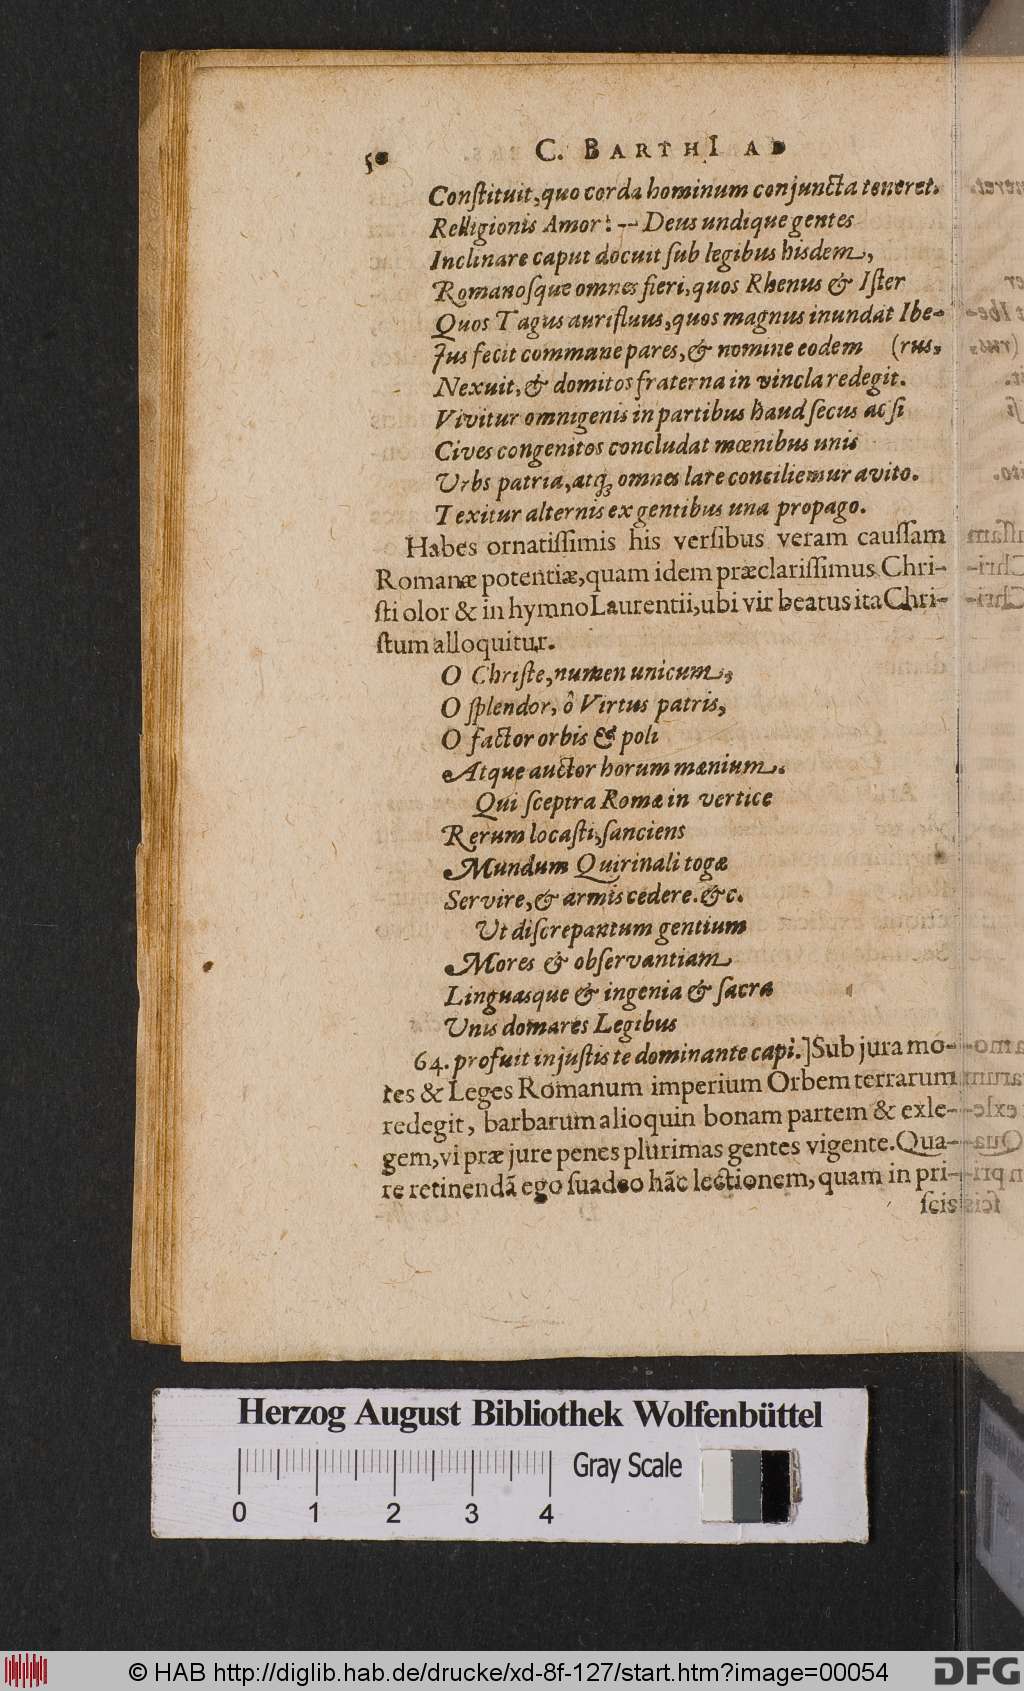 50 C. BARTHI AD
Conſtituit, quo corda hominum conjuncta teneret.
Relligionis Amor: -- Deus undique gentes
Inclinare caput docuit ſub legibus hisdem,
Romanoſque omnes fieri, quos Rhenus & Iſter
Quos Tagus aurifluus, quos magnus inundat Ibe-
Jus fecit commune pares, & nomine eodem (rus,
Nexuit, & domitos fraterna in vincla redegit.
Vivitur omnigenis in partibus haud ſecus ac ſi
Cives congenitos concludat mœnibus unis
Urbs patria, atq; omnes lare conciliemur avito.
Texitur alternis ex gentibus una propago.
Habes ornatiſſimis his verſibus veram cauſſam
Romanæ potentiæ, quam idem præclariſſimus Chri-
ſti olor & in hymno Laurentii, ubi vir beatus ita Chri-
ſtum alloquitur.
O Chriſte, numen unicum,
O ſplendor, ô Virtus patris,
O factor orbis & poli
Atque auctor horum mœnium.
Qui ſceptra Romæ in vertice
Rerum locaſti, ſanciens
Mundum Quirinali togæ
Servire, & armis cedere. &c.
Ut diſcrepantum gentium
Mores & obſervantiam
Linguasque & ingenia & ſacra
Unis domares Legibus
64. profuit injuſtis te dominante capi.] Sub jura mo-
res & Leges Romanum imperium Orbem terrarum
redegit, barbarum alioquin bonam partem & exle-
gem, vi præ jure penes plurimas gentes vigente. Qua-
re retinendã ego ſuadeo hãc lectionem, quam in pri-
ſcis
Herzog August Bibliothek Wolfenbüttel
Gray Scale
0 1 2 3 4
© HAB http://diglib.hab.de/drucke/xd-8f-127/start.htm?image=00054
DFG